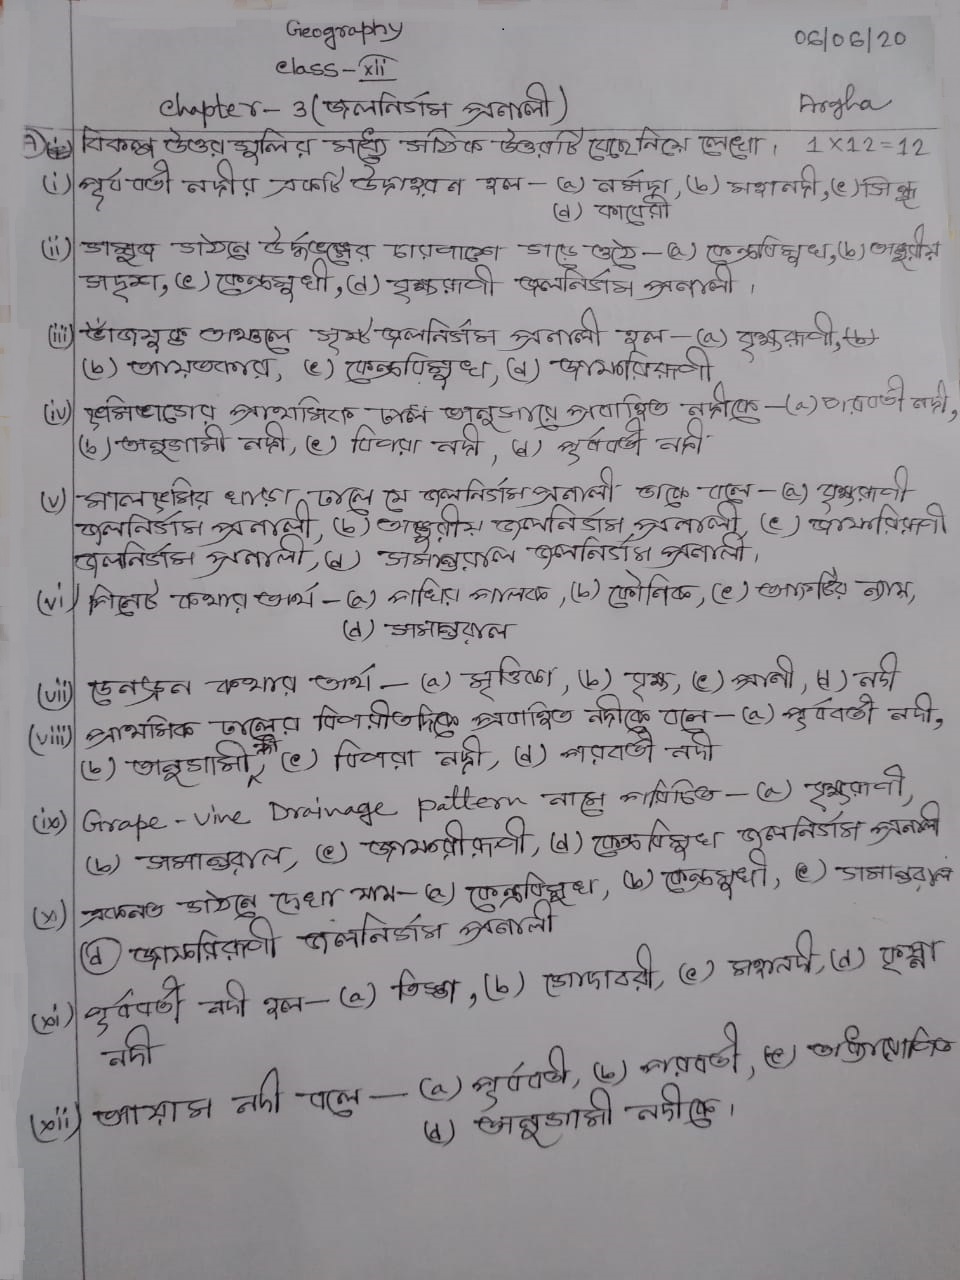 Geography
06/06/20
Class-XII
Chapter- 3 (জলনির্গম প্রনালী)
Argha
A) বিকল্প উত্তর গুলির মধ্যে সঠিক উত্তরটি বেছে নিয়ে লেখো। 1×12=12
(i) পূর্ববর্তী নদীর একটি উদাহরন হল- (a) নর্মদা, (b) মহানদী, (c) সিন্ধু
(d) কাবেরী
(ii) গম্বুজ গঠনে উর্দ্ধভঙ্গের চারপাশে গড়ে ওঠে- (a) কেন্দ্রবিমুখ, (b) অঙ্গুরীয়
সদৃশ, (c) কেন্দ্রমুখী, (d) বৃক্ষরূপী জলনির্গম প্রনালী।
(iii) ভাঁজযুক্ত অঞ্চলে সৃষ্ট জলনির্গম প্রনালী হল- (a) বৃক্ষরূপী,
(b) আয়তকার, (c) কেন্দ্রবিমুখ, (d) জাফরিরূপী
(iv) ভূমিভাগের প্রাথমিক ঢাল অনুসারে প্রবাহিত নদীকে- (a) পরবর্তী নদী,
(b) অনুগামী নদী, (c) বিপরা নদী, (d) পূর্ববর্তী নদী
(v) মালভূমির খাড়া ঢালে যে জলনির্গম প্রনালী তাকে বলে- (a) বৃক্ষরূপী
জলনির্গম প্রনালী, (b) অঙ্গুরীয় জলনির্গম প্রনালী, (c) জাফরিরূপী
জলনির্গম প্রনালী, (d) সমান্তরাল জলনির্গম প্রনালী।
(vi) পিনেট কথার অর্থ - (a) পাখির পালক, (b) কৌনিক, (c) আংটির ন্যায়,
(d) সমান্তরাল
(vii) ডেনড্রন কথার অর্থ - (a) মৃত্তিকা, (b) বৃক্ষ, (c) প্রানী, (d) নদী
(viii) প্রাথমিক ঢালের বিপরীতদিকে প্রবাহিত নদীকে বলে- (a) পূর্ববর্তী নদী,
(b) অনুগামী নদী, (c) বিপরা নদী, (d) পরবর্তী নদী
(ix) Grape-vine Drainage pattern নামে পরিচিত- (a) বৃক্ষরূপী,
(b) সমান্তরাল, (c) জাফরীরূপী, (d) কেন্দ্রবিমুখ জলনির্গম প্রনালী
(x) একনত গঠনে দেখা যায়- (a) কেন্দ্রবিমুখ, (b) কেন্দ্রমুখী, (c) সমান্তরাল
(d) জাফরিরূপী জলনির্গম প্রনালী
(xi) পূর্ববর্তী নদী হল- (a) তিস্তা, (b) গোদাবরী, (c) মহানদী, (d) কৃষ্ণা
নদী
(xii) নদী বলে- (a) পূর্ববর্তী, (b) পরবর্তী, (c) অধ্যারোপিত
(d) অনুগামী নদীকে।